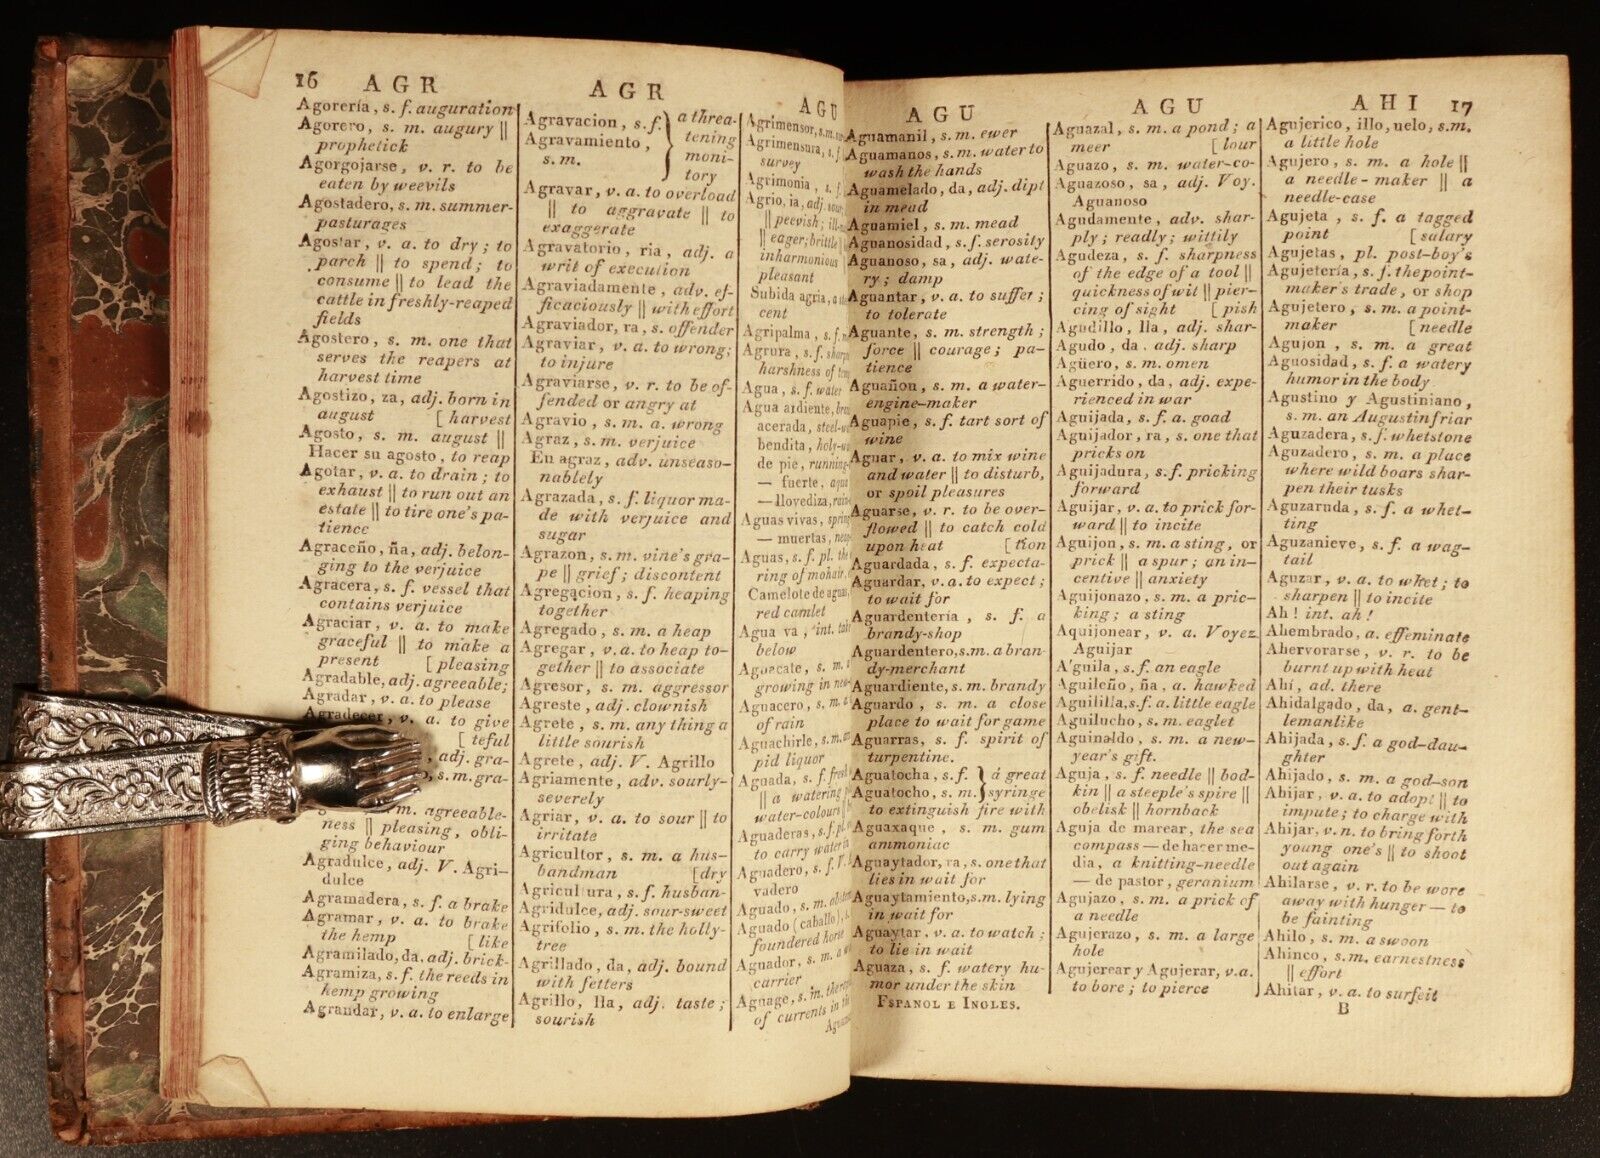 16 AGR AGR AGU
Agorería, s. f. auguration
Agorero, s. m. augury ||
prophetick
Agorgojarse, v. r. to be
eaten by weevils
Agostadero, s. m. summer-
pasturages
Agostar, v. a. to dry; to
parch || to spend; to
consume || to lead the
cattle in freshly-reaped
fields
Agostero, s. m. one that
serves the reapers at
harvest time
Agostizo, za, adj. born in
august [harvest
Agosto, s. m. august ||
Hacer su agosto, to reap
Agotar, v. a. to drain; to
exhaust || to run out an
estate || to tire one's pa-
tience
Agraceño, ña, adj. belon-
ging to the verjuice
Agracera, s. f. vessel that
contains verjuice
Agraciar, v. a. to make
graceful || to make a
present [pleasing
Agradable, adj. agreeable;
Agradar, v. a. to please
Agradecer, v. a. to give
[teful
, adj. gra-
o, s. m. gra-
m. agreeable-
ness || pleasing, obli-
ging behaviour
Agradulce, adj. V. Agri-
dulce
Agramadera, s. f. a brake
Agramar, v. a. to brake
the hemp [like
Agramilado, da, adj. brick-
Agramiza, s. f. the reeds in
hemp growing
Agrandar, v. a. to enlarge
Agravacion, s. f. } a threa-
Agravamiento, tening
s. m. moni-
tory
Agravar, v. a. to overload
|| to aggravate || to
exaggerate
Agravatorio, ria, adj. a
writ of execution
Agraviadamente, adv. ef-
ficaciously || with effort
Agraviador, ra, s. offender
Agraviar, v. a. to wrong;
to injure
Agraviarse, v. r. to be of-
fended or angry at
Agravio, s. m. a wrong
Agraz, s. m. verjuice
En agraz, adv. unseaso-
nablely
Agrazada, s. f. liquor ma-
de with verjuice and
sugar
Agrazon, s. m. vine's gra-
pe || grief; discontent
Agregacion, s. f. heaping
together
Agregado, s. m. a heap
Agregar, v. a. to heap to-
gether || to associate
Agresor, s. m. aggressor
Agreste, adj. clownish
Agrete, s. m. any thing a
little sourish
Agrete, adj. V. Agrillo
Agriamente, adv. sourly-
severely
Agriar, v. a. to sour || to
irritate
Agricultor, s. m. a hus-
bandman [dry
Agricultura, s. f. husban-
Agridulce, adj. sour-sweet
Agrifolio, s. m. the holly-
tree
Agrillado, da, adj. bound
with fetters
Agrillo, lla, adj. taste;
sourish
Agrimensor, s. m.
Agrimensura, s. f.
survey
Agrimonia, s. f.
Agrio, ia, adj. sour;
|| peevish; ill-
|| eager; brittle ||
inharmonious
pleasant
Subida agria,
cent
Agripalma, s. f.
Agrura, s. f. sharp
harshness of
Agua, s. f. water
Agua ardiente,
acerada, steel-
bendita, holy-
de pie, running-
— fuerte, aqua
— llovediza, rain
Aguas vivas, spring
— muertas,
Aguas, s. f. pl. the
ring of mohair,
Camelote de aguas,
red camlet
Agua va, int. take
below
Aguacate, s. m.
growing in new-
Aguacero, s. m. a
of rain
Aguachirle, s. m.
pid liquor
Aguada, s. f. fresh
|| a watering
water-colours ||
Aguaderas, s. f. pl.
to carry water in
Aguadero, s. f. V.
vadero
Aguado, s. m.
Aguado (caballo),
foundered horse
Aguador, s. m. a
carrier
Aguage, s. m. the
of currents in the
AGU AGU AHI 17
Aguamanil, s. m. ewer
Aguamanos, s. m. water to
wash the hands
Aguamelado, da, adj. dipt
in mead
Aguamiel, s. m. mead
Aguanosidad, s. f. serosity
Aguanoso, sa, adj. wate-
ry; damp
Aguantar, v. a. to suffer;
to tolerate
Aguante, s. m. strength;
force || courage; pa-
tience
Aguañon, s. m. a water-
engine-maker
Aguapie, s. f. tart sort of
wine
Aguar, v. a. to mix wine
and water || to disturb,
or spoil pleasures
Aguarse, v. r. to be over-
flowed || to catch cold
upon heat [tion
Aguardada, s. f. expecta-
Aguardar, v. a. to expect;
to wait for
Aguardentería, s. f. a
brandy-shop
Aguardentero, s. m. a bran-
dy-merchant
Aguardiente, s. m. brandy
Aguardo, s. m. a close
place to wait for game
Aguarras, s. f. spirit of
turpentine.
Aguatocha, s. f. } á great
Aguatocho, s. m. } syringe
to extinguish fire with
Aguaxaque, s. m. gum
ammoniac
Aguaytador, ra, s. one that
lies in wait for
Aguaytamiento, s. m. lying
in wait for
Aguaytar, v. a. to watch;
to lie in wait
Aguaza, s. f. watery hu-
mor under the skin
ESPANOL E INGLES.
Aguazal, s. m. a pond; a
meer [lour
Aguazo, s. m. water-co-
Aguazoso, sa, adj. Voy.
Aguanoso
Agudamente, adv. shar-
ply; readly; wittily
Agudeza, s. f. sharpness
of the edge of a tool ||
quickness of wit || pier-
cing of sight [pish
Agudillo, lla, adj. shar-
Agudo, da, adj. sharp
Agüero, s. m. omen
Aguerrido, da, adj. expe-
rienced in war
Aguijada, s. f. a goad
Aguijador, ra, s. one that
pricks on
Aguijadura, s. f. pricking
forward
Aguijar, v. a. to prick for-
ward || to incite
Aguijon, s. m. a sting, or
prick || a spur; an in-
centive || anxiety
Aguijonazo, s. m. a pric-
king; a sting
Aquijonear, v. a. Voyez
Aguijar
A'guila, s. f. an eagle
Aguileño, ña, a. hawked
Aguililla, s. f. a little eagle
Aguilucho, s. m. eaglet
Aguinaldo, s. m. a new-
year's gift.
Aguja, s. f. needle || bod-
kin || a steeple's spire ||
obelisk || hornback
Aguja de marear, the sea
compass — de hacer me-
dia, a knitting-needle
— de pastor, geranium
Agujazo, s. m. a prick of
a needle
Agujerazo, s. m. a large
hole
Agujerear y Agujerar, v. a.
to bore; to pierce
Agujerico, illo, uelo, s. m.
a little hole
Agujero, s. m. a hole ||
a needle-maker || a
needle-case
Agujeta, s. f. a tagged
point [salary
Agujetas, pl. post-boy's
Agujetería, s. f. the point-
maker's trade, or shop
Agujetero, s. m. a point-
maker [needle
Agujon, s. m. a great
Aguosidad, s. f. a watery
humor in the body
Agustino y Agustiniano,
s. m. an Augustin friar
Aguzadera, s. f. whetstone
Aguzadero, s. m. a place
where wild boars shar-
pen their tusks
Aguzaruda, s. f. a whet-
ting
Aguzanieve, s. f. a wag-
tail
Aguzar, v. a. to whet; to
sharpen || to incite
Ah! int. ah!
Ahembrado, a. effeminate
Ahervorarse, v. r. to be
burnt up with heat
Ahí, ad. there
Ahidalgado, da, a. gent-
lemanlike
Ahijada, s. f. a god-dau-
ghter
Ahijado, s. m. a god-son
Ahijar, v. a. to adopt || to
impute; to charge with
Ahijar, v. n. to bring forth
young one's || to shoot
out again
Ahilarse, v. r. to be wore
away with hunger — to
be fainting
Ahilo, s. m. a swoon
Ahinco, s. m. earnestness
|| effort
Ahitar, v. a. to surfeit
B